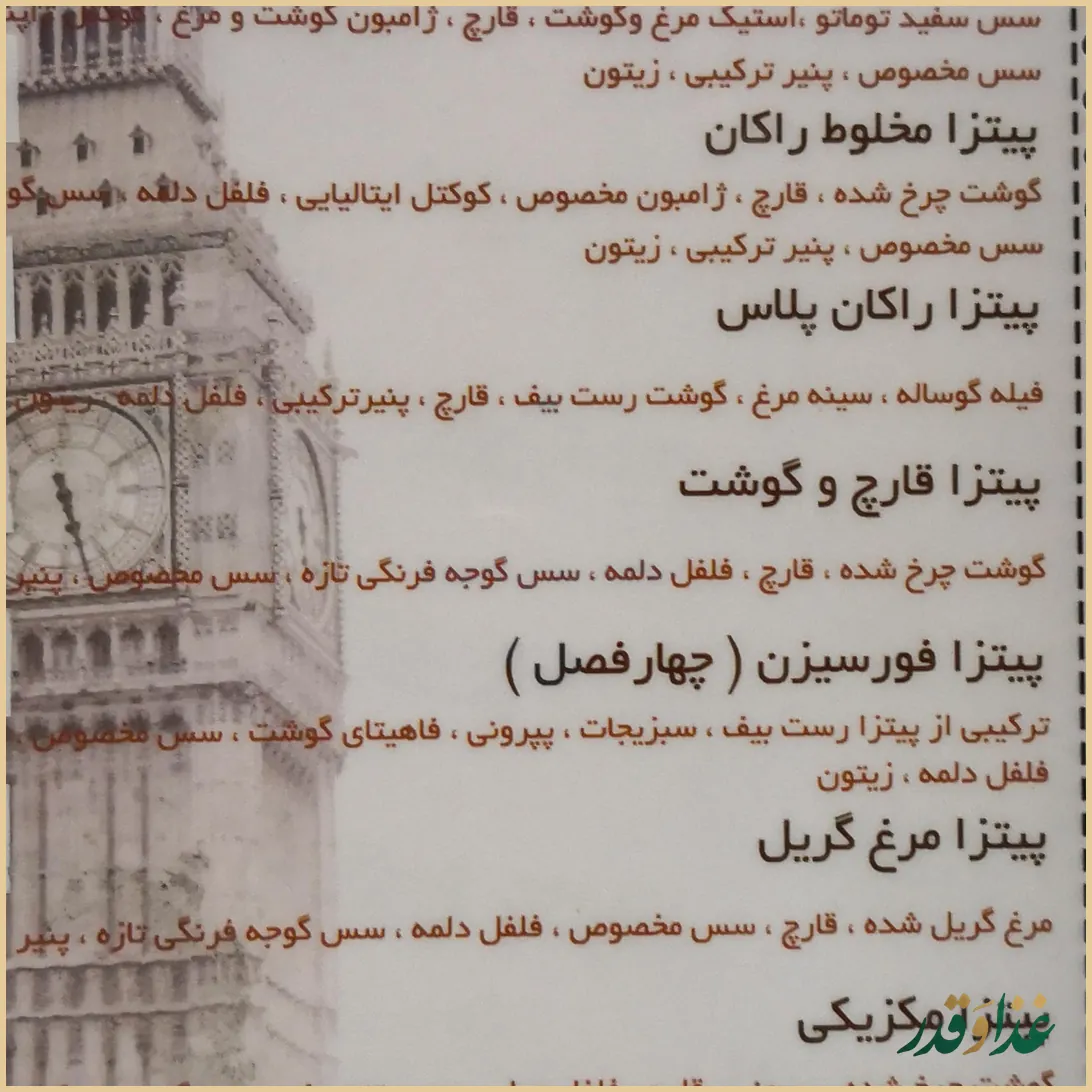 سس سفید توماتو ،استیک مرغ وگوشت ، قارچ ، ژامبون گوشت و مرغ ،
سس مخصوص ، پنیر ترکیبی ، زیتون
پیتزا مخلوط راکان
گوشت چرخ شده ، قارچ ، ژامبون مخصوص ، کوکتل ایتالیایی ، فلفل دلمه ، سس گو
سس مخصوص ، پنیر ترکیبی ، زیتون
پیتزا راکان پلاس
فیله گوساله ، سینه مرغ ، گوشت رست بیف ، قارچ ، پنیرترکیبی ، فلفل دلمه ، زیتون
پیتزا قارچ و گوشت
گوشت چرخ شده ، قارچ ، فلفل دلمه ، سس گوجه فرنگی تازه ، سس مخصوص ، پنیر
پیتزا فورسیزن ( چهارفصل )
ترکیبی از پیتزا رست بیف ، سبزیجات ، پپرونی ، فاهیتای گوشت ، سس مخصوص ،
فلفل دلمه ، زیتون
پیتزا مرغ گریل
مرغ گریل شده ، قارچ ، سس مخصوص ، فلفل دلمه ، سس گوجه فرنگی تازه ، پنیر
پیتزا مکزیکی
غذا و قدر